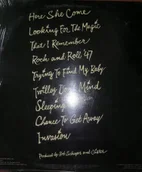 Here She Come
Looking For The Magic
That I Remember
Rock and Roll '47
Trying To Find My Baby
Trilley Dee's Mind
Sleeping
Chance To Get Away
Invasion
Produced by Bob Schaper and